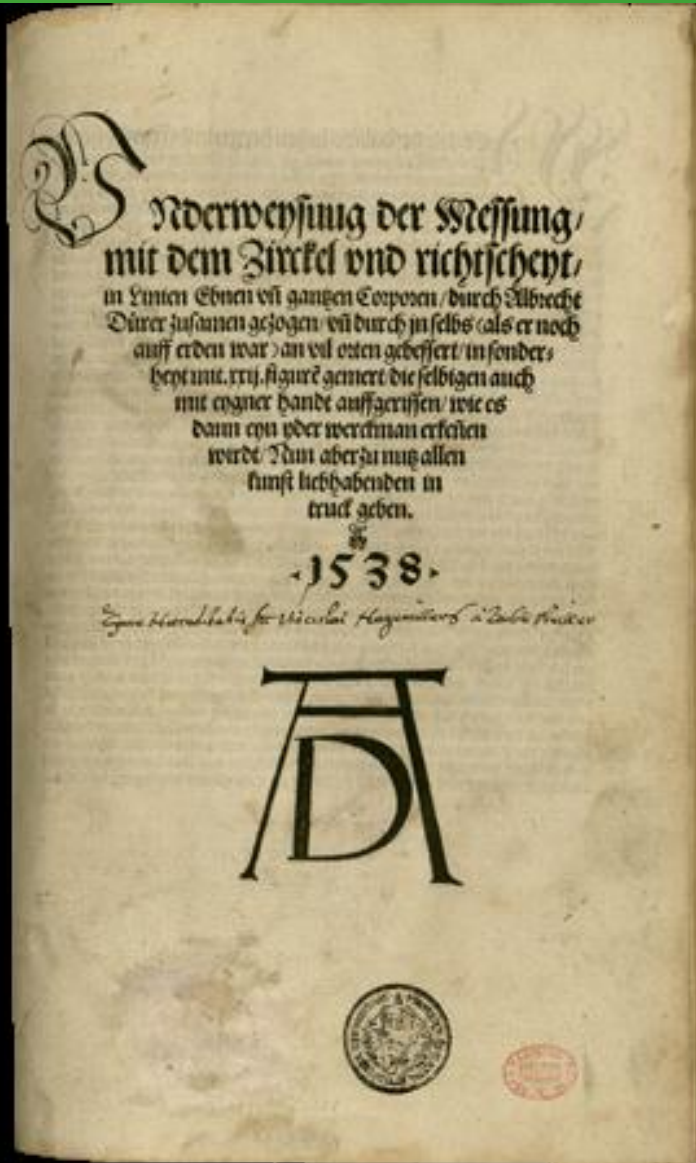 VNderweysung der Messung/
mit dem Zirckel vnd richtscheyt/
in Linien Ebnen vñ gantzen Corporen/durch Albrecht
Dürer zusamen gezogen/vñ durch jn selbs (als er noch
auff erden war) an vil orten gebessert/in sonder⸗
heyt mit .xxij. figurẽ gemert/die selbigen auch
mit eygner handt auffgerissen/wie es
dann eyn yder werckman erkeñen
wirdt/Nun aber zu nutz allen
kunst liebhabenden in
truck geben.
·1538·
AD